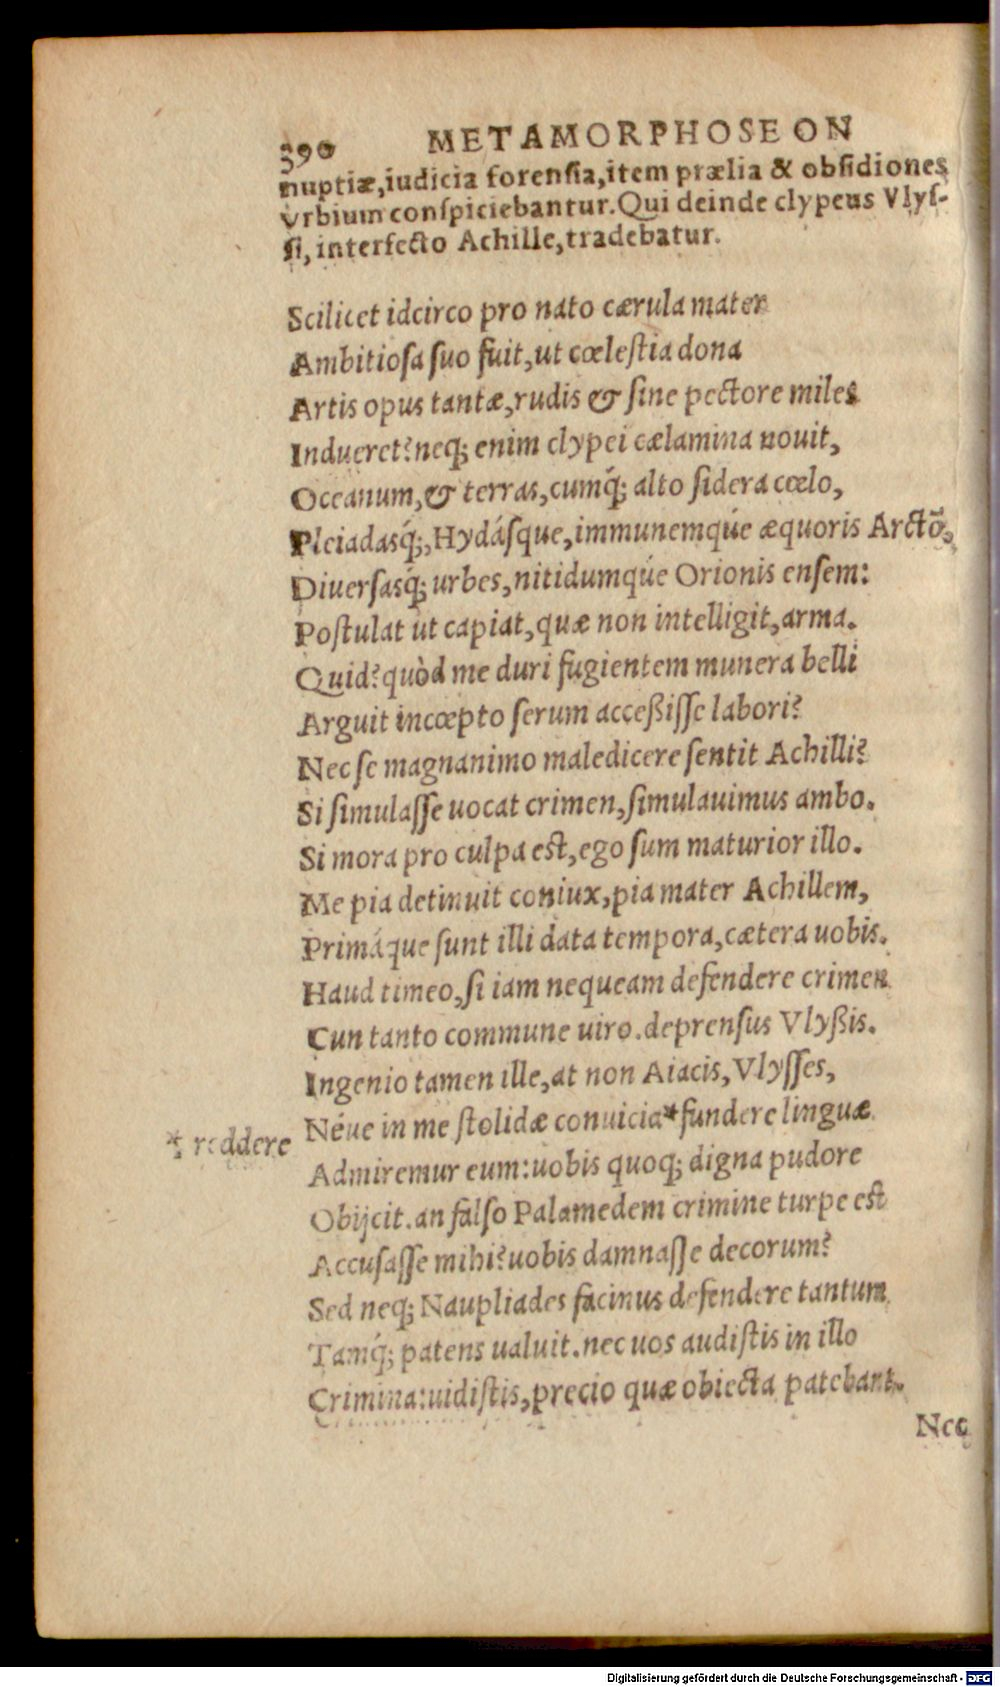 390 METAMORPHOSEON
nuptiæ,iudicia forenſia,item prælia & obſidiones
vrbium conſpiciebantur.Qui deinde clypeus Vlyſ-
ſi, interfecto Achille,tradebatur.
Scilicet idcirco pro nato cærula mater
Ambitioſa ſuo fuit,ut cœleſtia dona
Artis opus tantæ,rudis & ſine pectore miles
Indueret?neq; enim clypei cælamina nouit,
Oceanum,& terras,cumq́; alto ſidera cœlo,
Pleiadasq́;,Hydáſque,immunemqúe æquoris Arctō,
Diuerſasq́; urbes,nitidumqúe Orionis enſem:
Poſtulat ut capiat,quæ non intelligit,arma.
Quid?quòd me duri fugientem munera belli
Arguit incœpto ſerum acceßiſſe labori?
Nec ſe magnanimo maledicere ſentit Achilli?
Si ſimulaſſe uocat crimen,ſimulauimus ambo.
Si mora pro culpa est,ego ſum maturior illo.
Me pia detinuit coniux,pia mater Achillem,
Primáque ſunt illi data tempora,cætera uobis.
Haud timeo,ſi iam nequeam defendere crimen
Cun tanto commune uiro.deprenſus Vlyßis.
Ingenio tamen ille,at non Aiacis,Vlyſſes,
Néue in me ſtolidæ conuicia*fundere linguæ
* reddere
Admiremur eum:uobis quoq; digna pudore
Obijcit.an falſo Palamedem crimine turpe est
Accuſaſſe mihi?uobis damnaſſe decorum?
Sed neq; Naupliades facinus defendere tantum
Tamq́; patens ualuit.nec uos audiſtis in illo
Crimina:uidiſtis,precio quæ obiecta patebant.
Nec
Digitalisierung gefördert durch die Deutsche Forschungsgemeinschaft - DFG